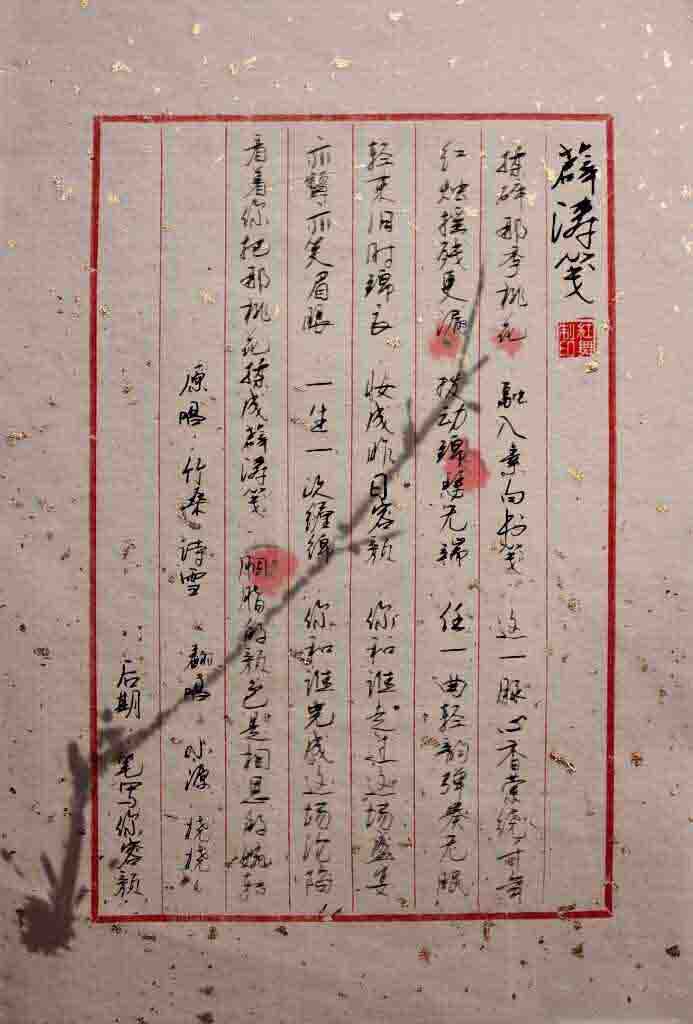 薛涛笺
红舞制印
揉碎那季桃花 融入素白书笺 这一脉心香萦绕可
红烛摇残更漏 拨动锦瑟无端 任一曲轻韵弹奏无眠
轻束旧时锦衣 妆成昨日容颜 你和谁走过这场盛
亦颦亦笑眉眼 一生一次缠绵 你和谁完成这场沦陷
看着你把那桃花揉成薛涛笺 胭脂的颜色是相思的婉转
原唱 竹桑 诗雪 翻唱 水源 桡桡
后期 笔写你容颜